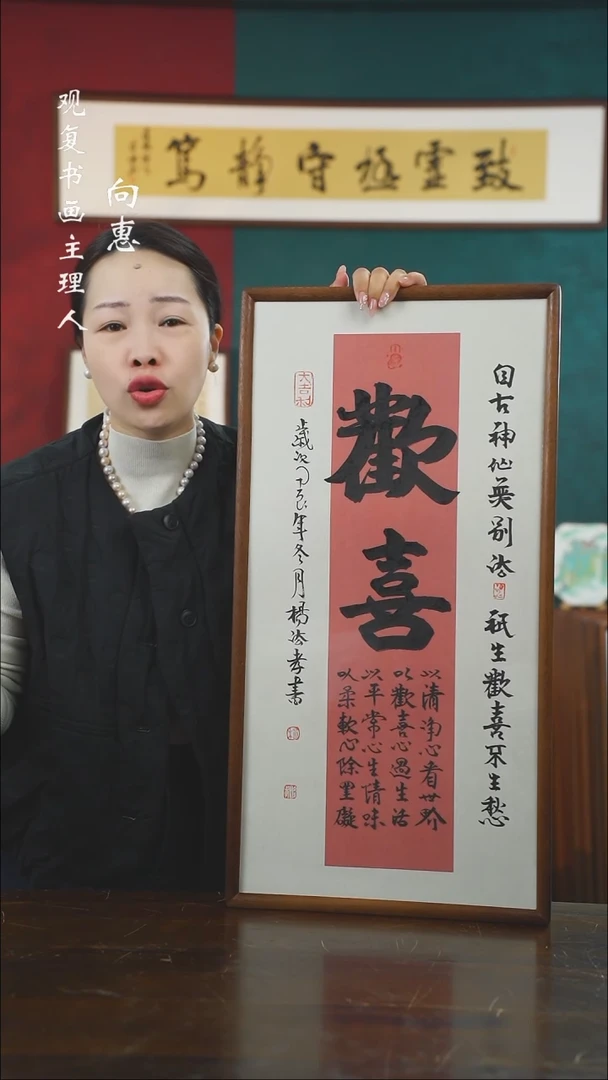 观复书画主理人
向惠
致虛極守静篤
自古神仙無别法
祇生歡喜不生愁
歡喜
以清净心看世界
以歡喜心過生活
以平常心生情味
以柔軟心除罣礙
歲次年冬月楊法孝書